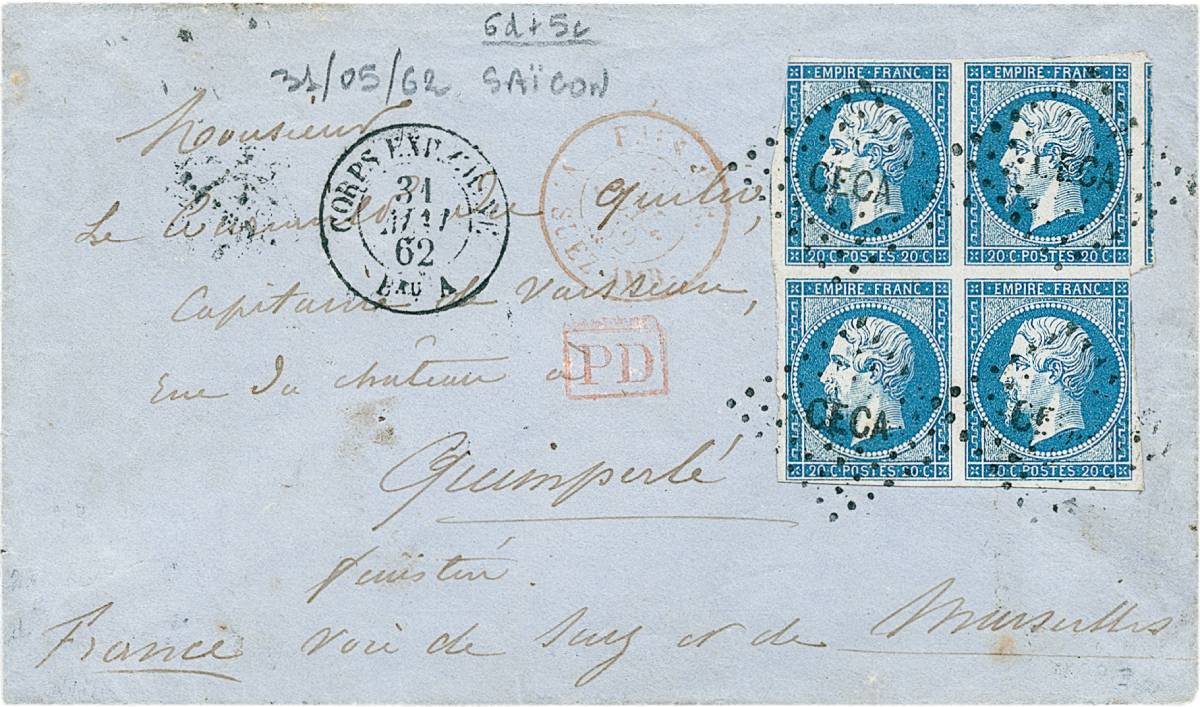 6d+5c
31/05/62 SAÏGON
Monsieur
Le
Capitaine de Vaisseau,
rue du château
Quimperlé
finistère.
France voie de Suez et de Marseilles
CORPS EXP. CHINE
31
MAI
62
BAU A
SUEZ
PD
EMPIRE·FRANC EMPIRE·FRANC
CECA CECA
20 C POSTES 20 C 20 C POSTES 20 C
EMPIRE·FRANC EMPIRE·FRANC
CECA CE
20 C POSTES 20 C 20 C POSTES 20 C